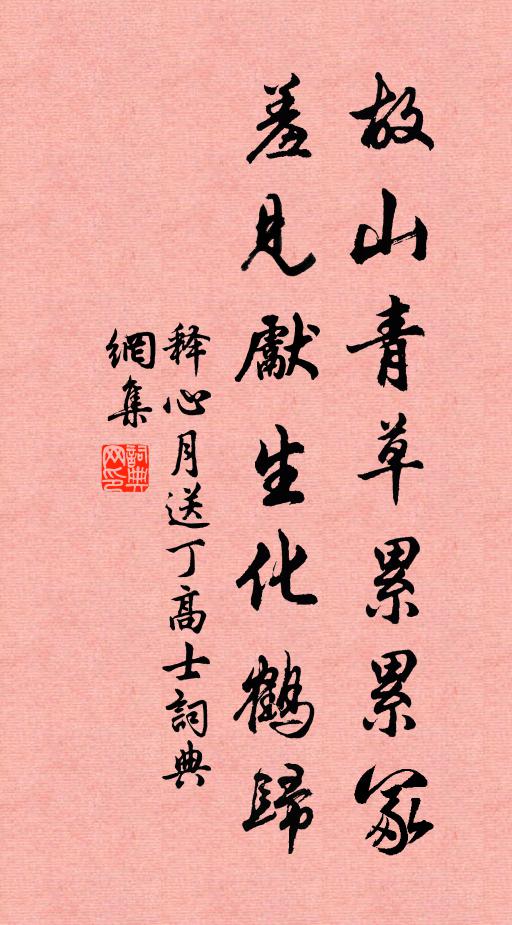 故山青草累累冢
羞見獻生化鶴歸
释心月送丁高士詞典
網集
詞典
网印